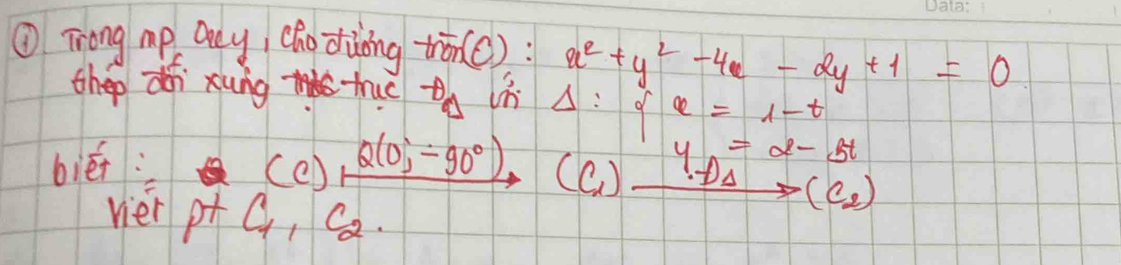 Data:
① Trong mp Oxy, cho đường tròn (C): x² + y² - 4x - 2y + 1 = 0.
thép đối xứng trục Đ∆ với ∆: { x = 1 - t
y = 2 - 5t
biết: (C) Q(O; -90°) → (C₁) Đ∆ → (C₂)
viết pt C₁, C₂.